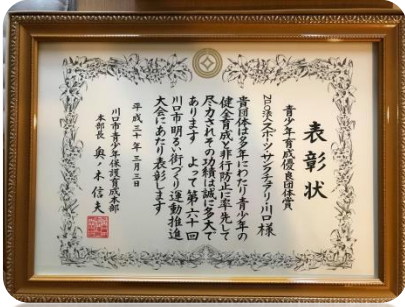 表彰状
青少年育成優良団体賞
NPO法人スポーツ・サンクチュアリ・川口 様
貴団体は多年にわたり青少年の
健全育成と非行防止に率先して
尽力されその功績は誠に多大で
あります よって第六十回
川口市明るい街づくり運動推進
大会にあたり表彰します
平成三十年三月三日
川口市青少年保護育成本部
本部長 奥ノ木信夫